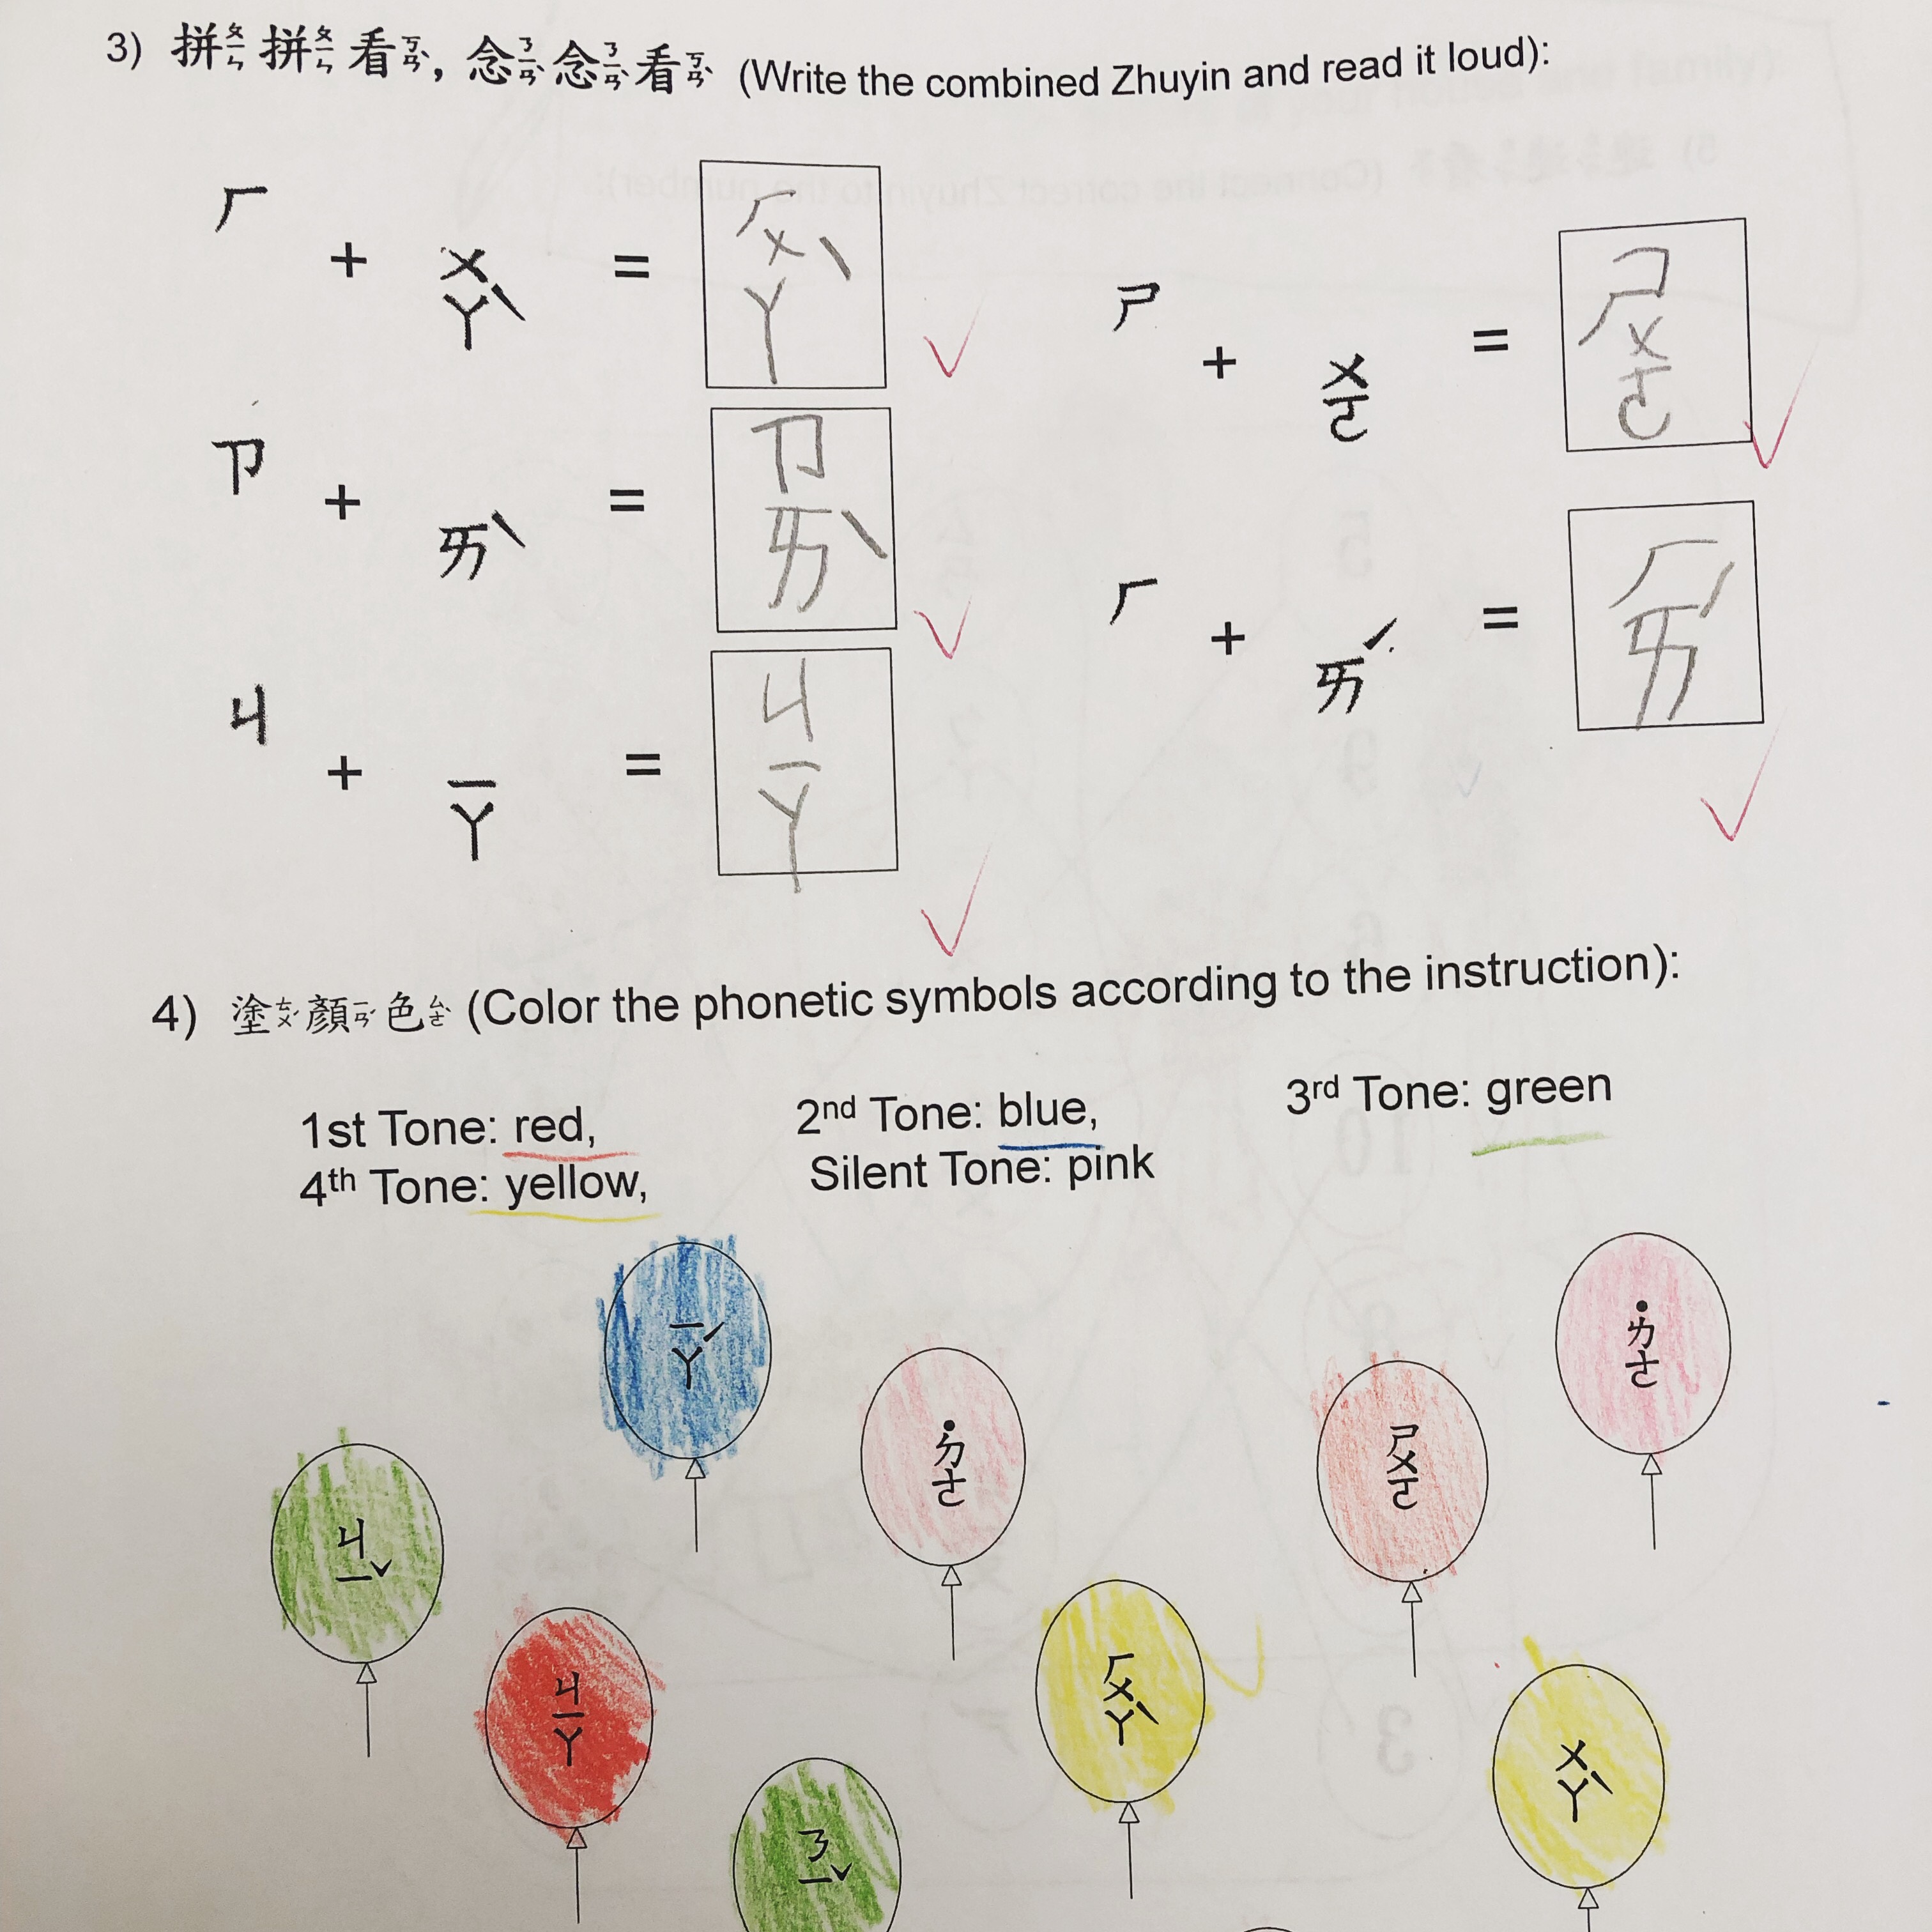 3) 拼ㄆㄧㄣ拼ㄆㄧㄣ看ㄎㄢˋ, 念ㄋㄧㄢˋ念ㄋㄧㄢˋ看ㄎㄢˋ (Write the combined Zhuyin and read it loud):
ㄏ + ㄨㄚˋ = ㄏㄨㄚˋ
ㄗ + ㄞˋ = ㄗㄞˋ
ㄐ + ㄧㄚ = ㄐㄧㄚ
ㄕ + ㄨㄛ = ㄕㄨㄛ
ㄏ + ㄞˊ = ㄏㄞˊ
4) 塗ㄊㄨˊ顏ㄧㄢˊ色ㄙㄜˋ (Color the phonetic symbols according to the instruction):
1st Tone: red, 2nd Tone: blue, 3rd Tone: green
4th Tone: yellow, Silent Tone: pink
ㄧㄚˊ
˙ㄌㄜ
˙ㄉㄜ
ㄕㄨㄛ
ㄐㄧˇ
ㄐㄧㄚ
ㄏㄨㄚˋ
ㄨㄚˋ
ㄋㄧˇ